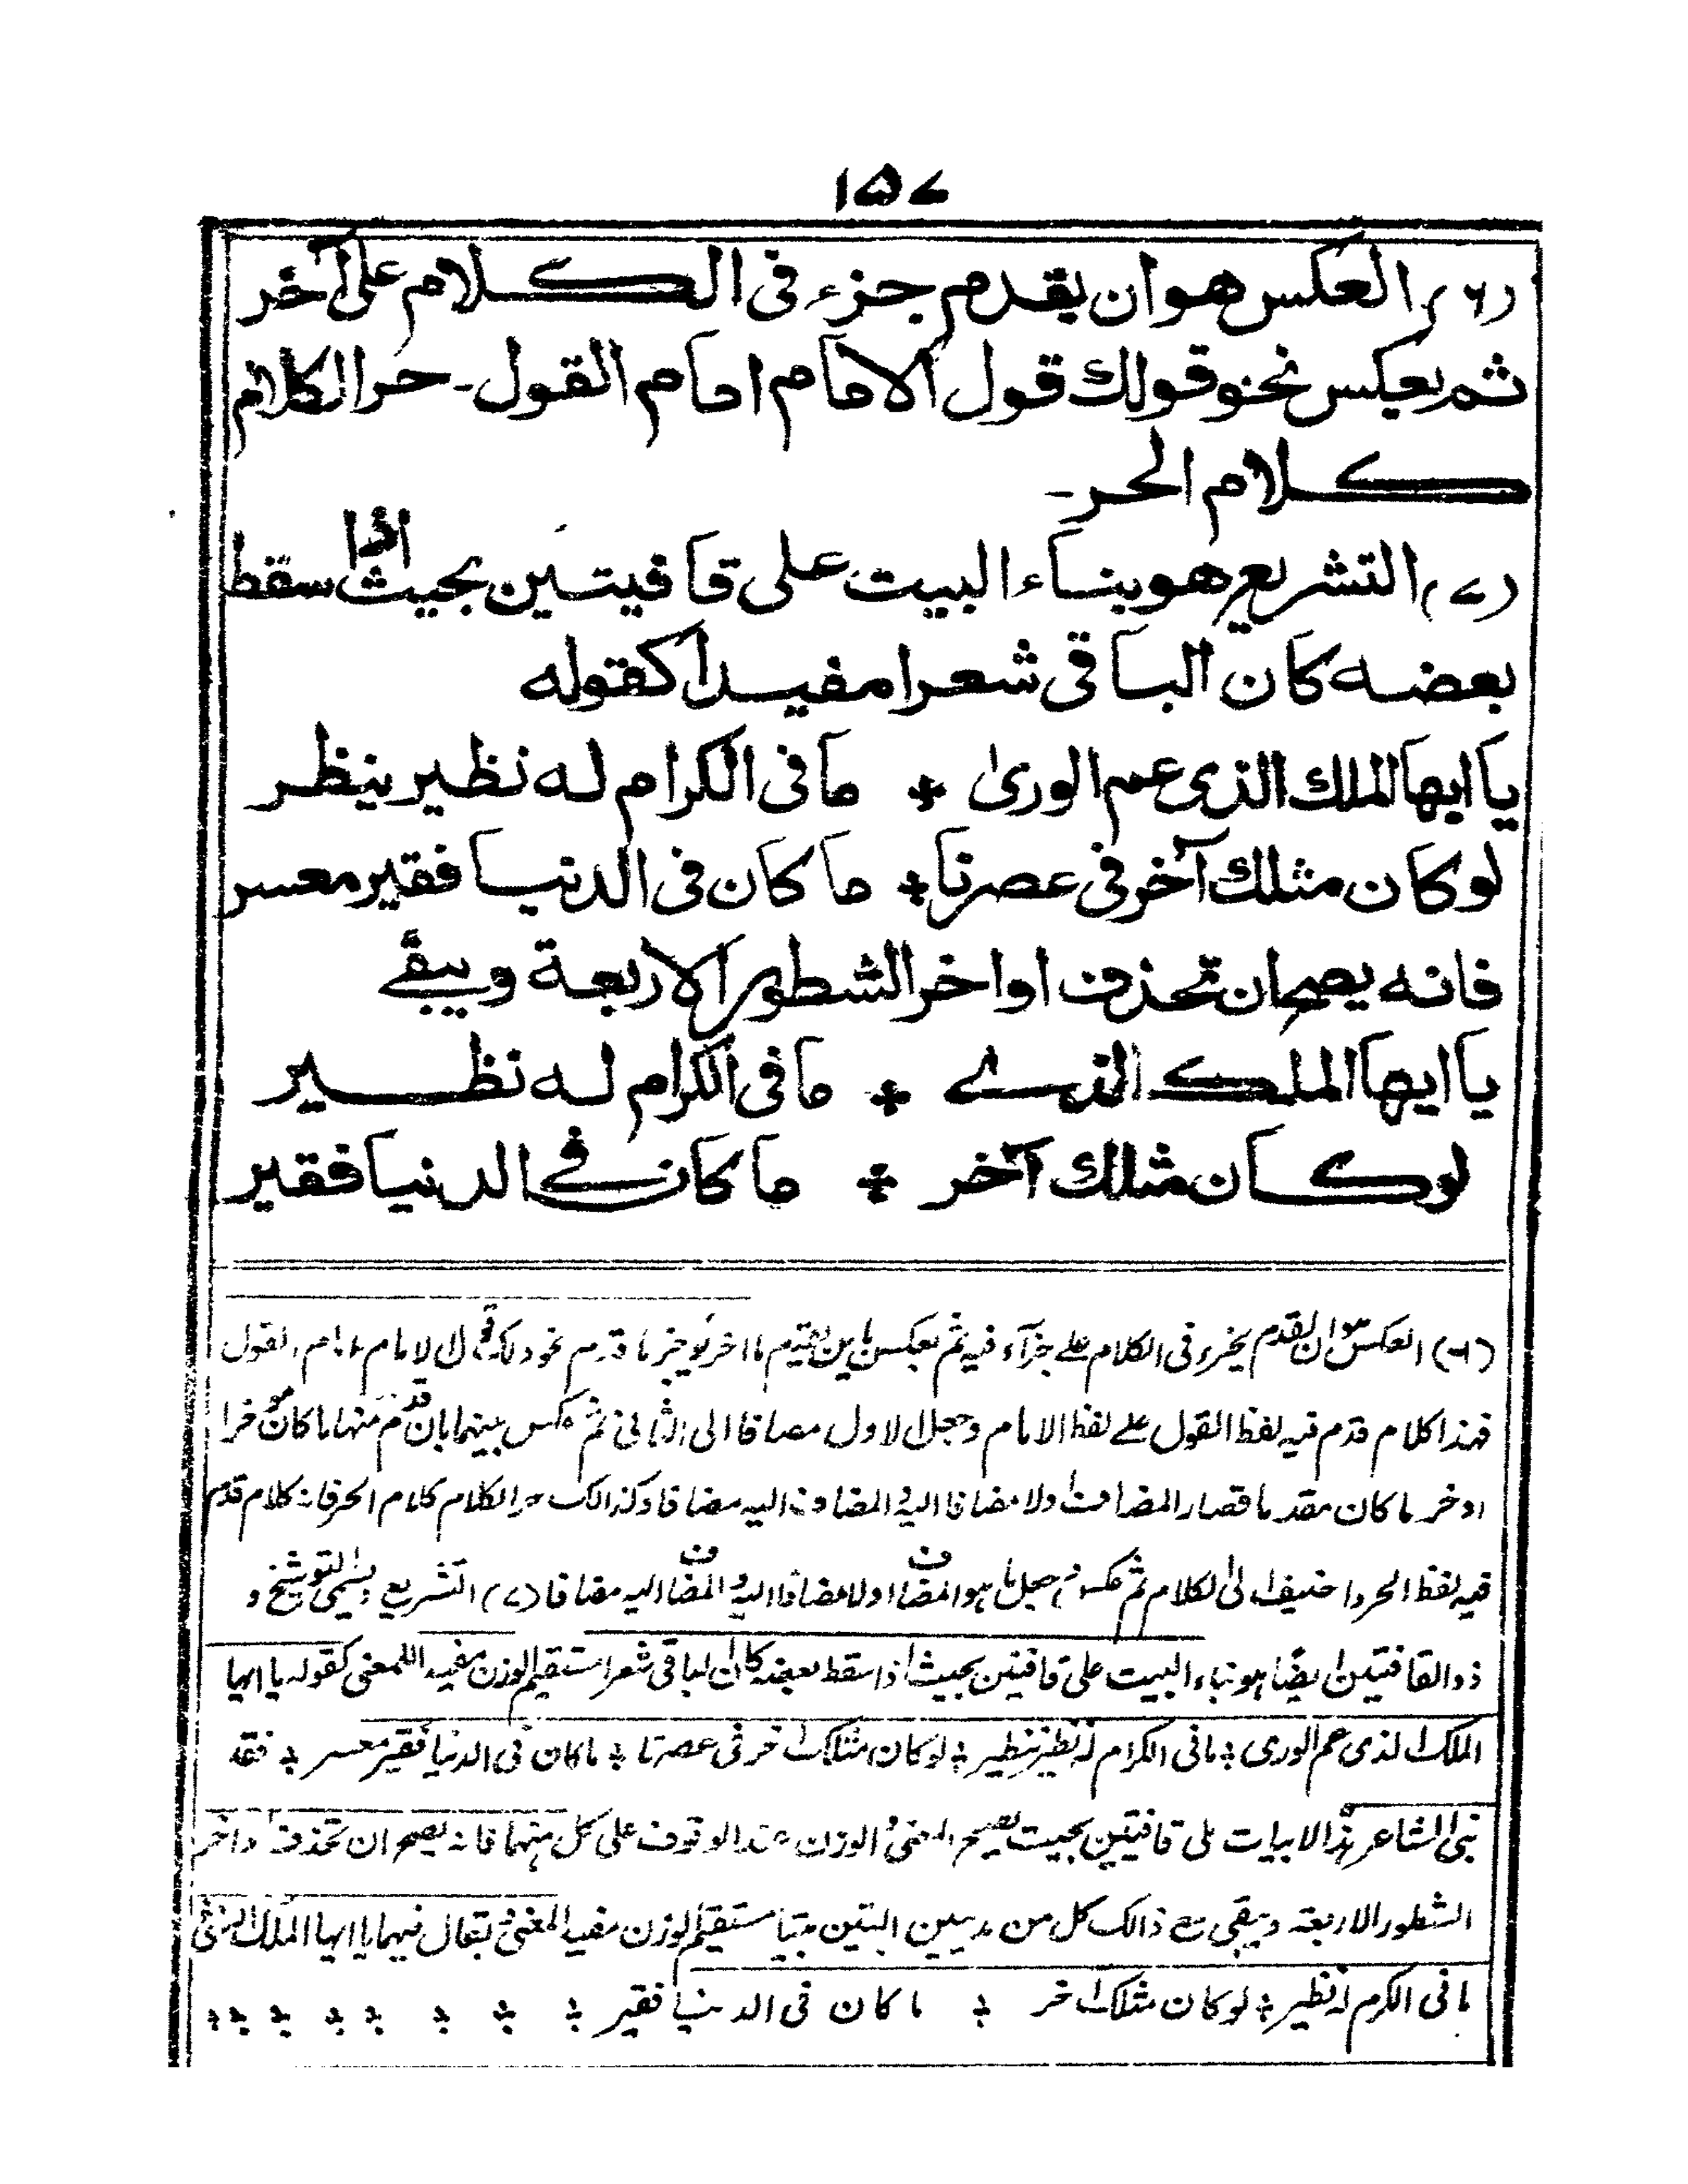 ١٥٧
(٦) العكس هو ان يقدم جزء فى الكلام على آخر
ثم يعكس نحو قولك قول الامام امام القول ۔ حر الكلام
كلام الحر ۔
(٧) التشريع هو بناء البيت على قافيتين بحيث اذا سقط
بعضه كان الباقى شعرا مفيدا كقوله
يا ايها الملك الذى عم الورىٰ ٭ ما فى الكرام له نظير ينظر
لو كان مثلك آخر فى عصرنا ٭ ما كان فى الدنيا فقير معسر
فانه يصح ان تحذف اواخر الشطور الاربعة ويبقے
يا ايها الملك الذے ٭ ما فى الكرام له نظير
لو كان مثلك آخر ٭ ما كان فے الدنيا فقير
(٦) العكس هو ان يقدم جزء فى الكلام علے جزء آخر فيه ثم يعكس بان يقدم ما اخر ويؤخر ما قدم نحو قولك قول الامام امام القول
فهذا كلام قدم فيه لفظ القول علے لفظ الامام وجعل الاول مضافا الى الثانى ثم عكس بينهما بان قدم منهما ما كان مؤخرا
واخر ما كان مقدما فصار المضاف اولا مضافا اليه والمضاف اليه مضافا وكذالك حر الكلام كلام الحر فانه كلام قدم
فيه لفظ الحر واضيف الى الكلام ثم عكس جعل ما هو المضاف اولا مضافا اليه والمضاف اليه مضافا (٧) التشريع ويسمى التوشيح و
ذو القافيتين ايضا هو بناء البيت على قافيتين بحيث اذا سقط بعضه كان الباقى شعرا مستقيم الوزن مفيد المعنى كقوله يا ايها
الملك الذى عم الورى ٭ ما فى الكرام له نظير ينظر ٭ لو كان مثلك اخر فى عصرنا ٭ ما كان فى الدنيا فقير معسر ٭ فقد
بنى الشاعر هذا الابيات على قافيتين بحيث يصح المعنى والوزن عند الوقوف على كل منهما فانه يصح ان تحذف اواخر
الشطور الاربعة ويبقى مع ذالك كل من البيتين بيتا مستقيم الوزن مفيد المعنى فيقال فيهما يا ايها الملك الذى
ما فى الكرم له نظير ٭ لو كان مثلك اخر ٭ ما كان فى الدنيا فقير ٭ ٭ ٭ ٭ ٭ ٭ ٭ ٭